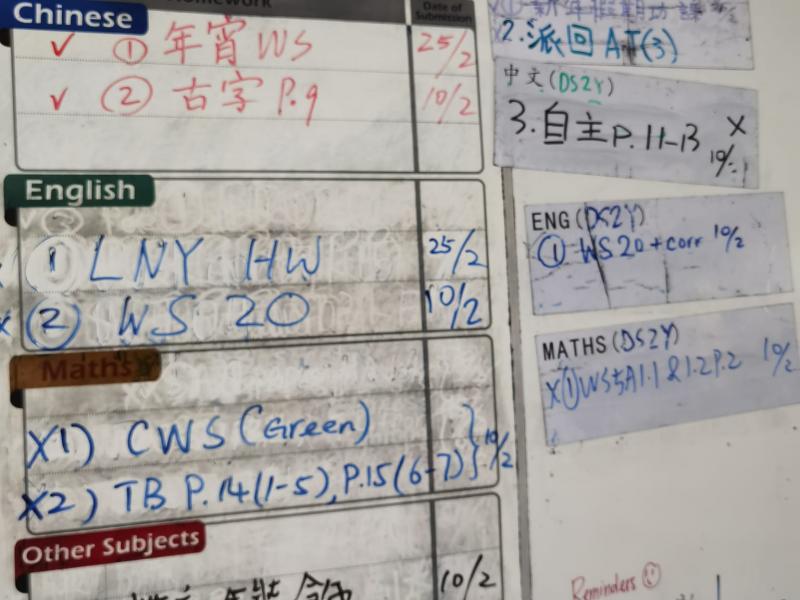 Homework
Date of Submission
Chinese
✓ ① 年宵WS 25/2
✓ ② 古字 P.9 10/2
English
① LNY HW 25/2
x ② WS 20 10/2
Maths
X1) CWS (Green)
X2) TB P.14(1-5), P.15(6-7) } 10/2
Other Subjects
10/2
2. 派回 AT(3)
中文(DS2Y)
3. 自主 P.11-13 X
ENG (DS2Y)
① WS 20 + corr 10/2
MATHS (DS2Y)
X① WS 5A1.1 & 1.2 P.2 10/2
Reminders